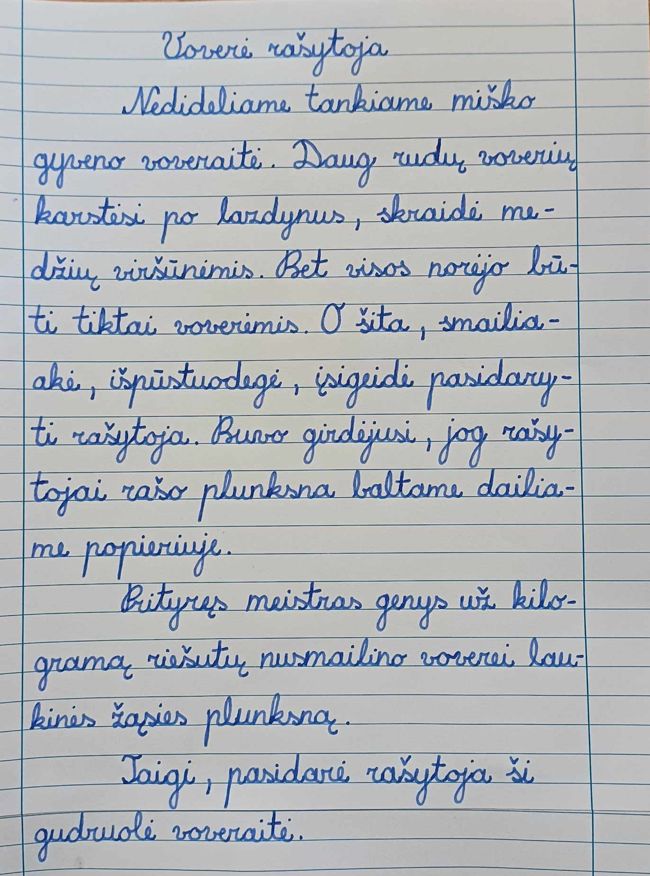 Voverė rašytoja
Nedideliame tankiame miško
gyveno voveraitė. Daug rudų voverių
karstėsi po lazdynus, skraidė me-
džių viršūnėmis. Bet visos norėjo bū-
ti tiktai voverėmis. O šita, smailia-
akė, išpūstuodegė, įsigeidė pasidary-
ti rašytoja. Buvo girdėjusi, jog rašy-
tojai rašo plunksna baltame dailia-
me popieriuje.
Prityręs meistras genys už kilo-
gramą riešutų nusmailino voverei lau-
kinės žąsies plunksną.
Taigi, pasidarė rašytoja ši
gudruolė voveraitė.